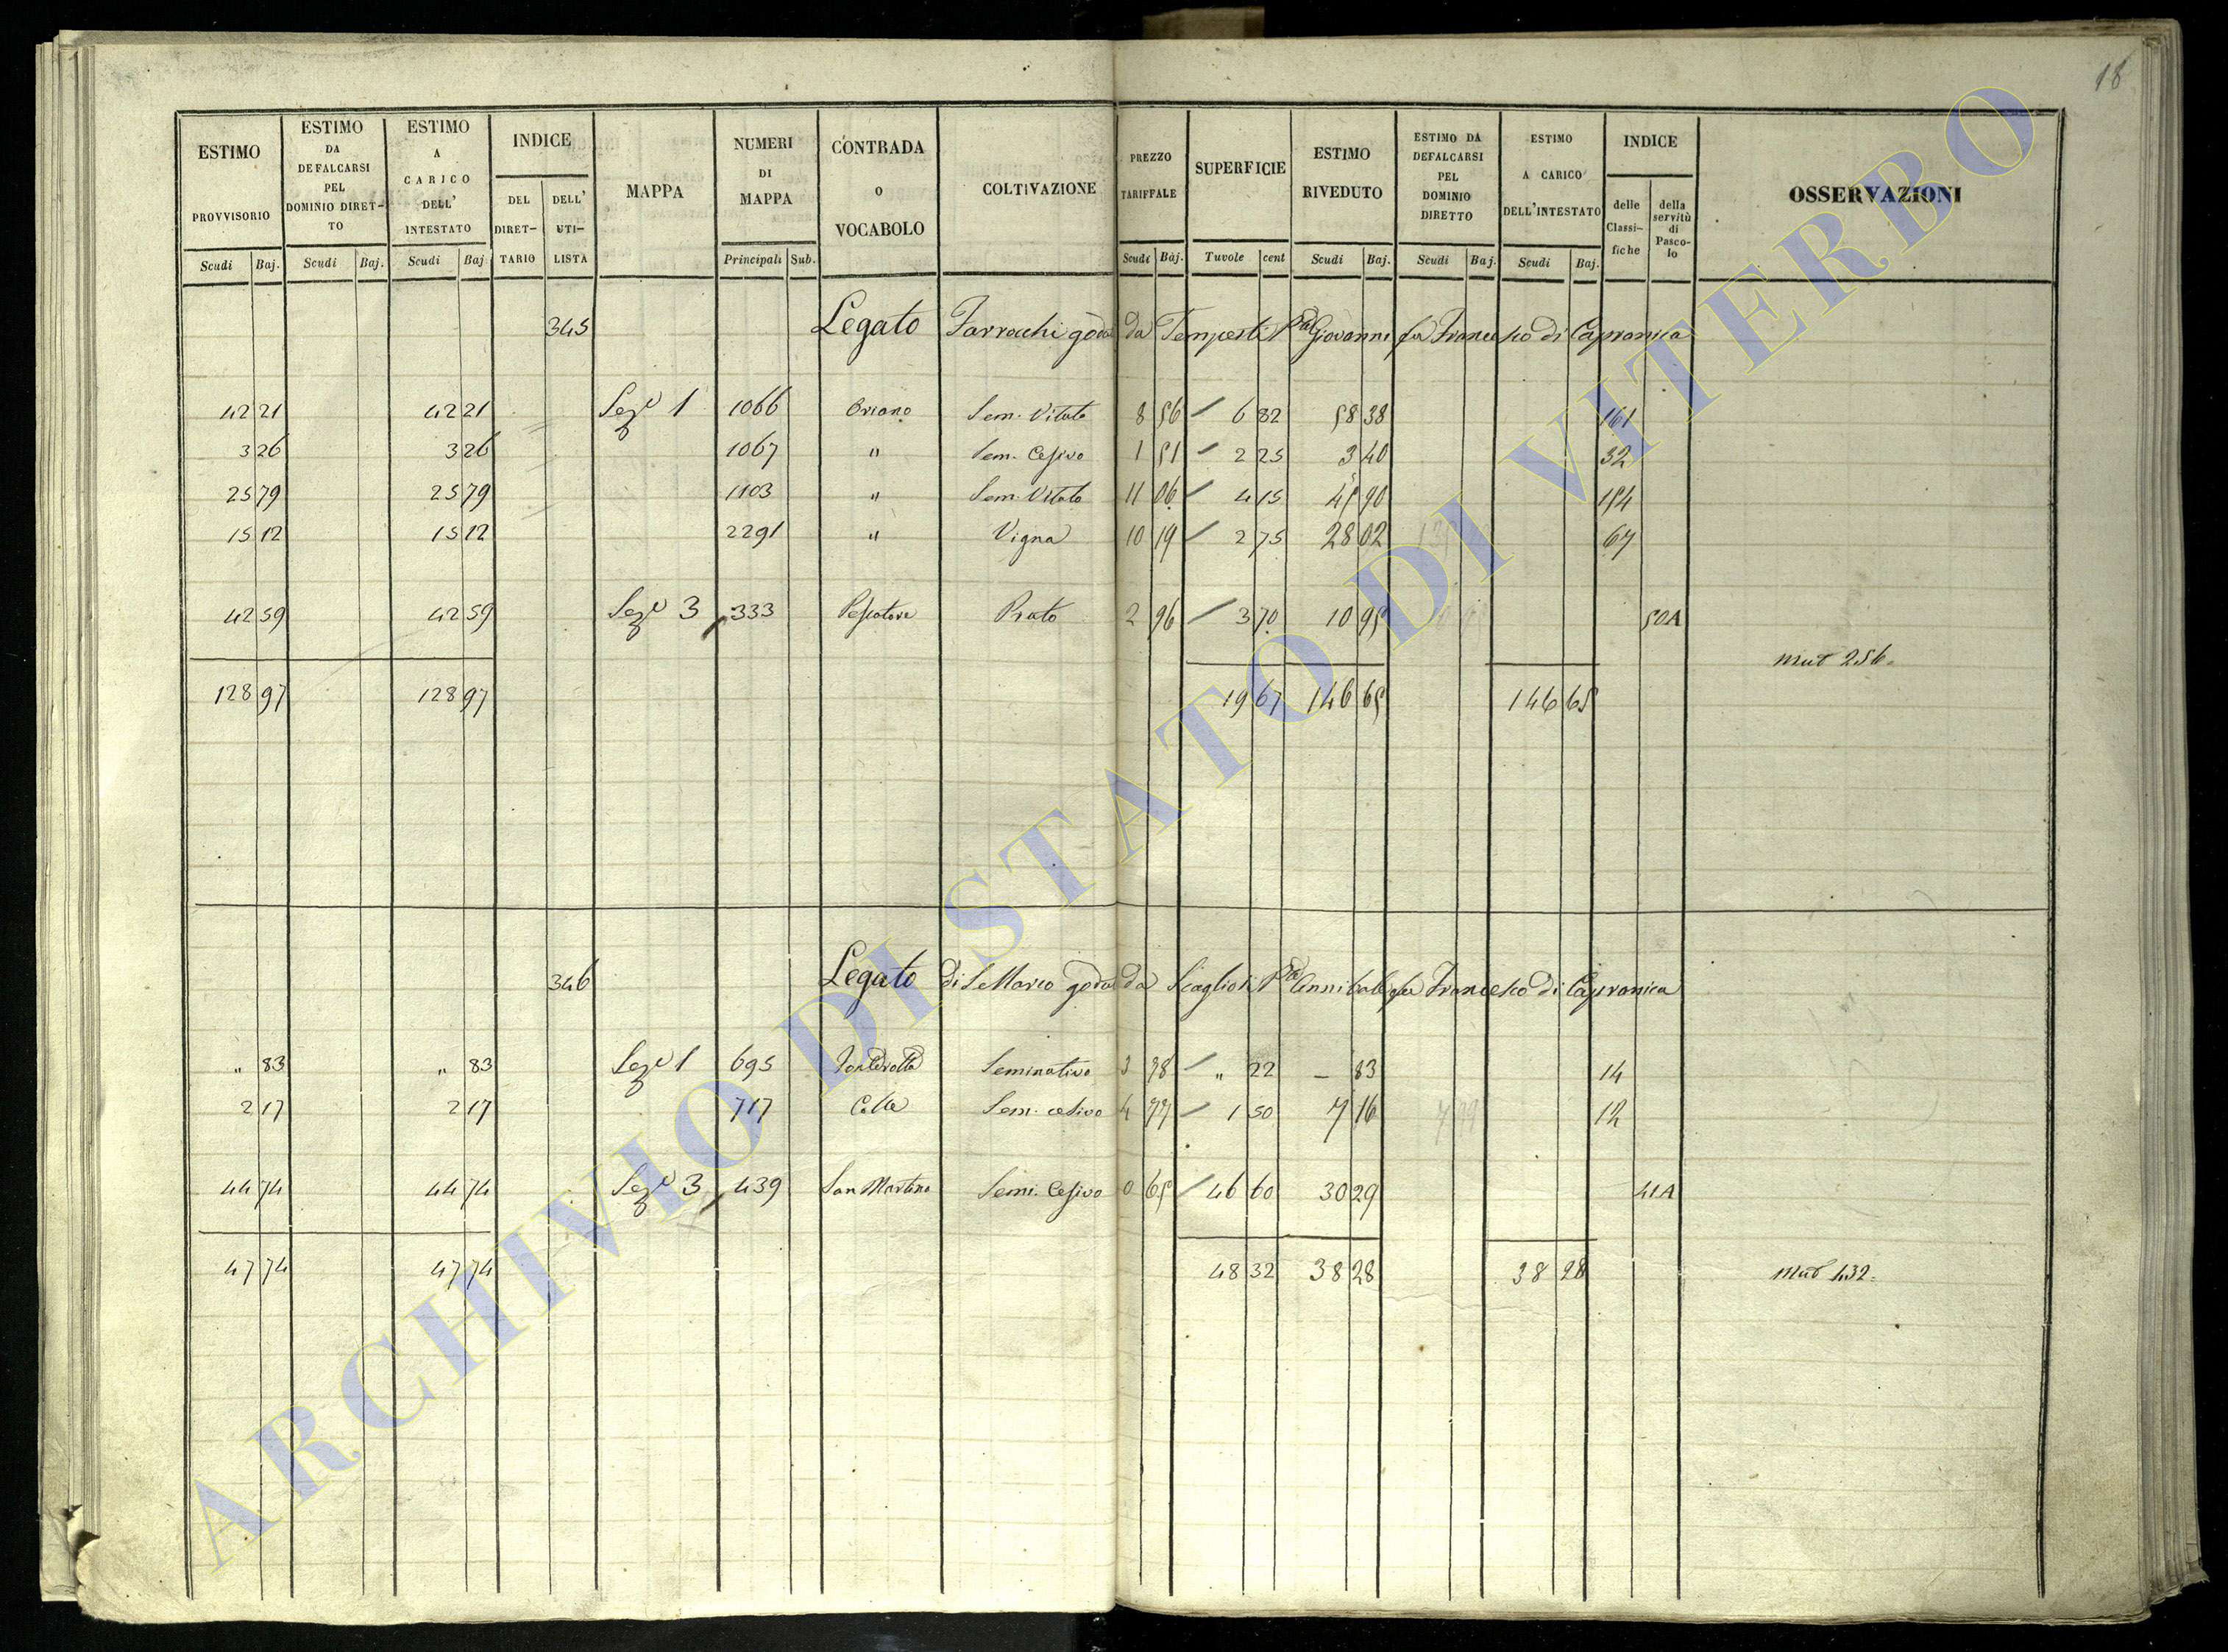 18
ESTIMO PROVVISORIO
ESTIMO DA DEFALCARSI PEL DOMINIO DIRET-TO
ESTIMO A CARICO DELL' INTESTATO
INDICE
DEL DIRET-TARIO
DELL' UTI-LISTA
MAPPA
NUMERI DI MAPPA
CONTRADA O VOCABOLO
COLTIVAZIONE
PREZZO TARIFFALE
SUPERFICIE
ESTIMO RIVEDUTO
ESTIMO DA DEFALCARSI PEL DOMINIO DIRETTO
ESTIMO A CARICO DELL'INTESTATO
INDICE
delle Classi-fiche
della servitù di Pasco-lo
OSSERVAZIONI
Scudi Baj. Scudi Baj. Scudi Baj. Principali Sub. Scudi Baj. Tavole cent Scudi Baj. Scudi Baj. Scudi Baj.
345 Legato Farrocchi godu da Tempesti Giovanni fu Francesco di Capranica
42 21 42 21 Sez 1 1066 Oriano Sem. Vitato 8 56 6 82 58 38 161
3 26 3 26 1067 " Sem. Cesivo 1 51 2 25 3 40 32
25 79 25 79 1103 " Sem. Vitato 11 06 4 15 45 90 154
15 12 15 12 2291 " Vigna 10 19 2 75 28 02 67
42 59 42 59 Sez 3 333 Pescatore Prato 2 96 3 70 10 95 50A
mut 256
128 97 128 97 19 67 146 65 146 65
346 Legato di S Marco godu da Scaglioli Annibale fu Francesco di Capranica
" 83 " 83 Sez 1 695 Seminativo 3 78 " 22 – 83 14
2 17 2 17 717 Colle Sem. cesivo 4 77 1 50 7 16 12
44 74 44 74 Sez 3 439 San Martino Semi. Cesivo 0 65 46 60 30 29 41A
47 74 47 74 48 32 38 28 38 28 mut 132
ARCHIVIO DI STATO DI VITERBO